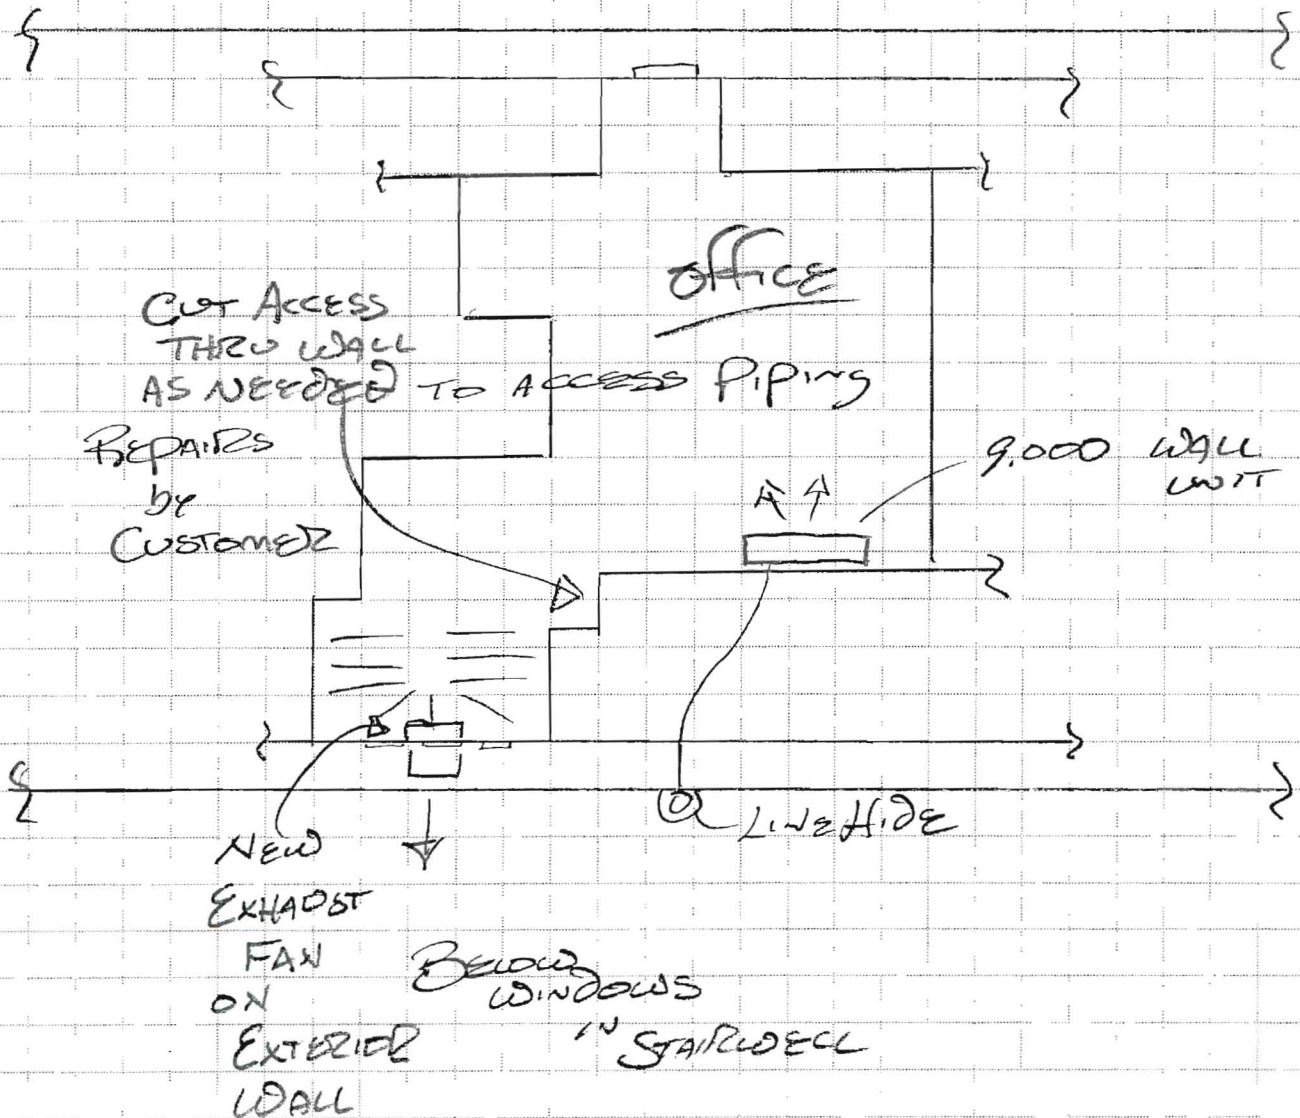 Office
Cut Access
THRU WALL
AS NEEDED TO ACCESS Piping
Repairs
by
Customer
9,000 WALL
UNIT
LINE HIDE
NEW
EXHAUST
FAN
ON
EXTERIOR
WALL
BELOW
WINDOWS
IN STAIRWELL